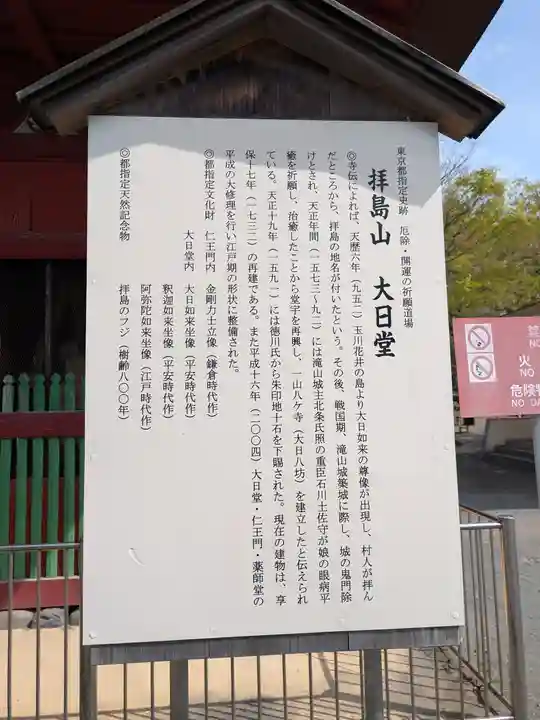 東京都指定史跡　厄除・開運の祈願道場
拝島山　大日堂
◎寺伝によれば、天歴六年（九五二）玉川花井の島より大日如来の尊像が出現し、村人が拝ん
だところから、拝島の地名が付いたという。その後、戦国期、滝山城築城に際し、城の鬼門除
けとされ、天正年間（一五七三～九二）には滝山城主北条氏照の重臣石川土佐守が娘の眼病平
癒を祈願し、治癒したことから堂宇を再興し、一山八ケ寺（大日八坊）を建立したと伝えられ
ている。天正十九年（一五九一）には徳川氏から朱印地十石を下賜された。現在の建物は、享
保十七年（一七三二）の再建である。また平成十六年（二〇〇四）大日堂・仁王門・薬師堂の
平成の大修理を行い江戸期の形状に整備された。
◎都指定文化財　仁王門内　金剛力士立像（鎌倉時代作）
大日堂内　大日如来坐像（平安時代作）
釈迦如来坐像（平安時代作）
阿弥陀如来坐像（江戸時代作）
◎都指定天然記念物　拝島のフジ（樹齢八〇〇年）
禁
NO
火
NO
危険物
NO DA